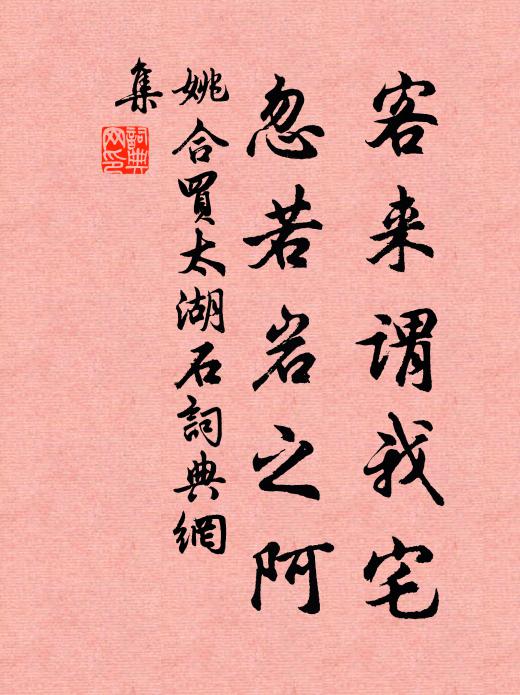 客来謂我宅
忽若岩之阿
姚合買太湖石詞典網
集
詞典網印